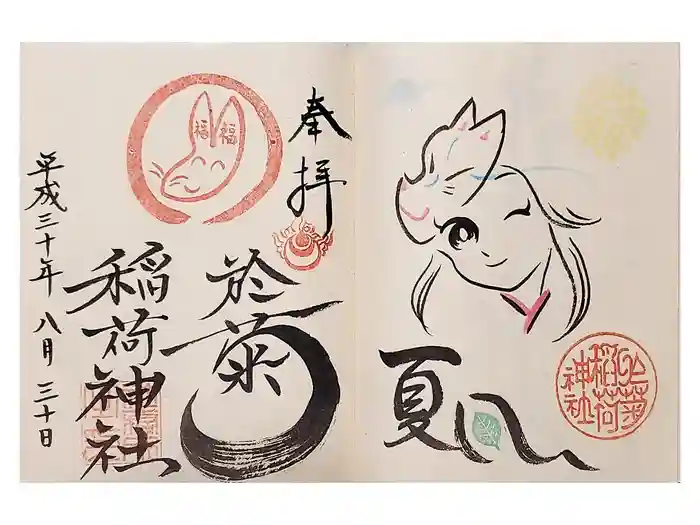 夏詣
於菊
稲荷
神社
奉拝
福福
於菊
稲荷神社
平成三十年八月三十日